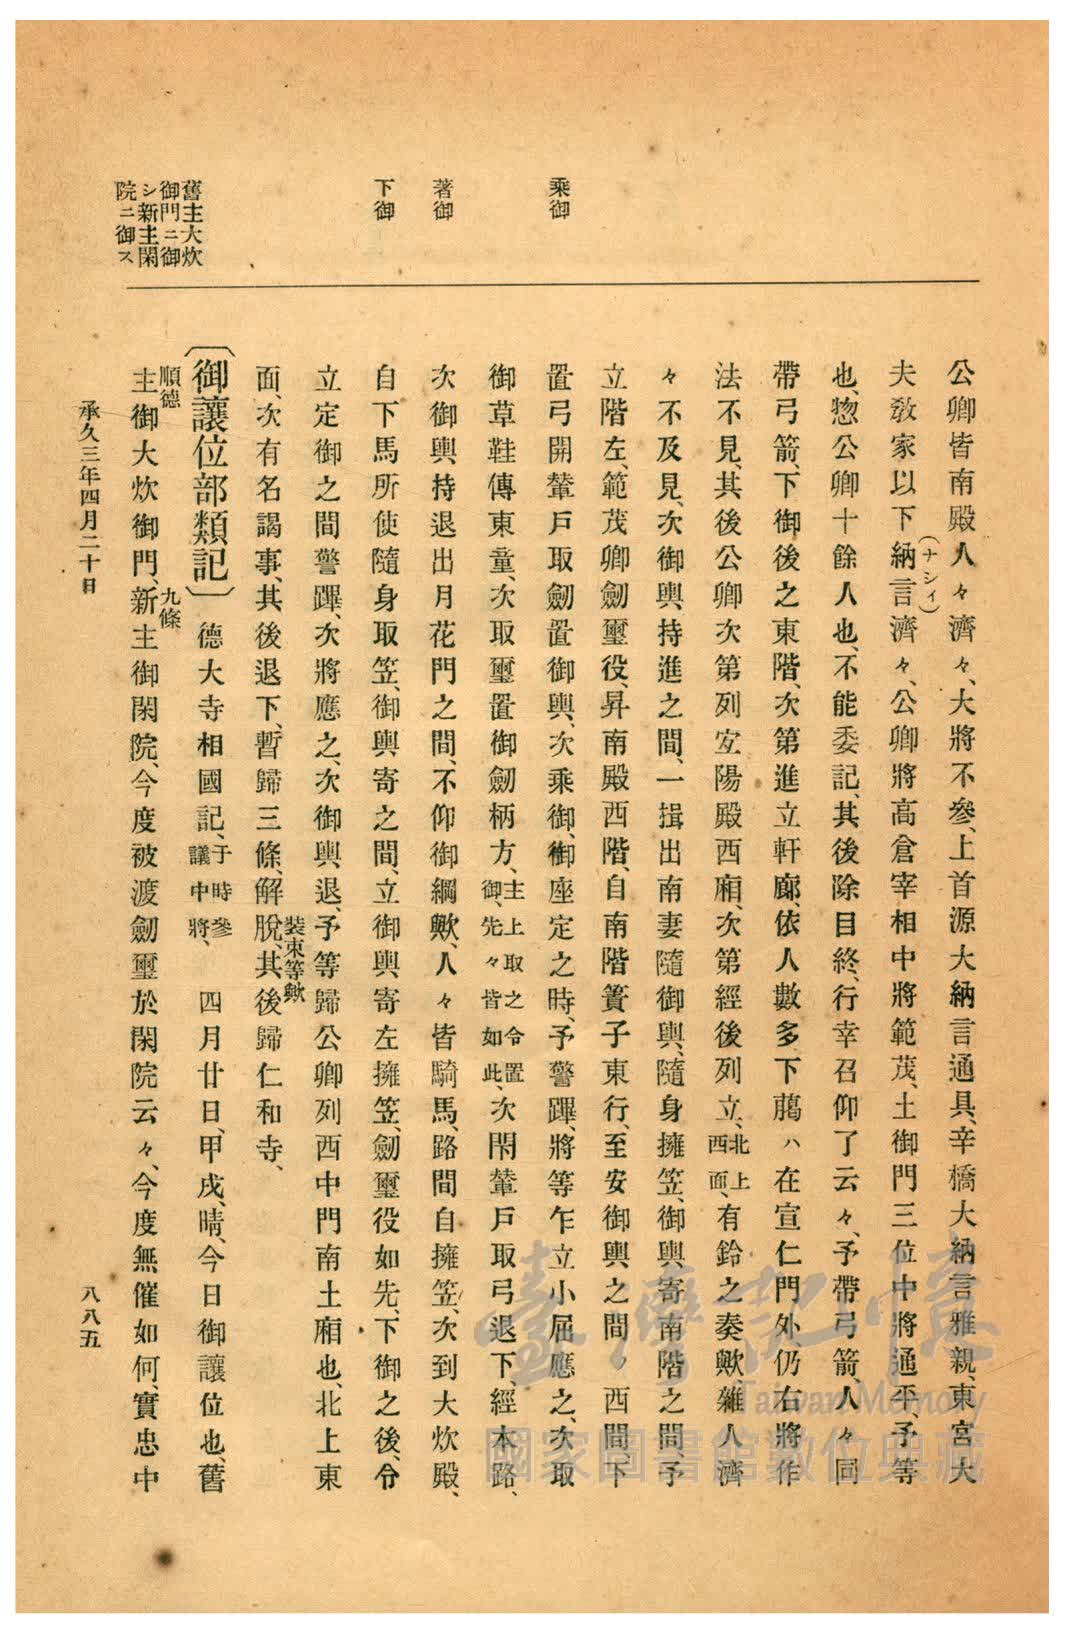 乘御
著御
下御
舊主大炊
御門ニ御
シ新主閑
院ニ御ス
公卿皆南殿人々濟々、大將不參、上首源大納言通具、辛橋大納言雅親、東宮大
(ナシィ)
夫敎家以下納言濟々、公卿將高倉宰相中將範茂、土御門三位中將通平、予等
也、惣公卿十餘人也、不能委記、其後除目終、行幸召仰了云々、予帶弓箭、人々同
帶弓箭、下御後之東階、次第進立軒廊、依人數多、下﨟ハ在宣仁門外仍右將作
法不見、其後公卿次第列宜陽殿西廂、次第經後列立、北上西面、有鈴之奏歟、雜人濟
々不及見、次御輿持進之間、一揖出南妻隨御輿、隨身擁笠、御輿寄南階之間、予
立階左、範茂卿劒璽役、昇南殿西階、自南階簀子東行、至安御輿之間ノ西間、下
置弓開輦戶取劒置御輿、次乘御、御座定之時、予警蹕、將等乍立小屈應之、次取
御草鞋傳東童、次取璽置御劒柄方、主上取之令置御、先々皆如此、次閇輦戶取弓退下、經本路、
次御輿、持退出月花門之間、不仰御綱歟、人々皆騎馬、路間自擁笠、次到大炊殿、
自下馬所使隨身取笠、御輿寄之間、立御輿、寄左擁笠、劒璽役如先、下御之後、令
立定御之間警蹕、次將應之、次御輿、退、予等歸公卿列西中門南土廂也、北上東
面、次有名謁事、其後退下、暫歸三條、解脫、其後歸仁和寺、
裝束等歟
〔御讓位部類記〕 德大寺相國記、于時參議中將、 四月廿日、甲戌、晴、今日御讓位也、舊
順德
九條、
主御大炊御門、新主御閑院、今度被渡劒璽於閑院云々、今度無催如何、實忠中
承久三年四月二十日
八八五
臺灣記憶
Taiwan Memory
國家圖書館數位典藏